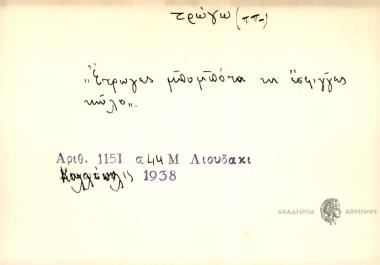 τρώγω (ππ-)
"Έτρωγες μπομπότα κη έσφιγγες
κώλο".
Αριθ. 1151 σ. 44 Μ Λιουδάκι
1938
ΑΚΑΔΗΜΙΑ ΑΘΗΝΩΝ